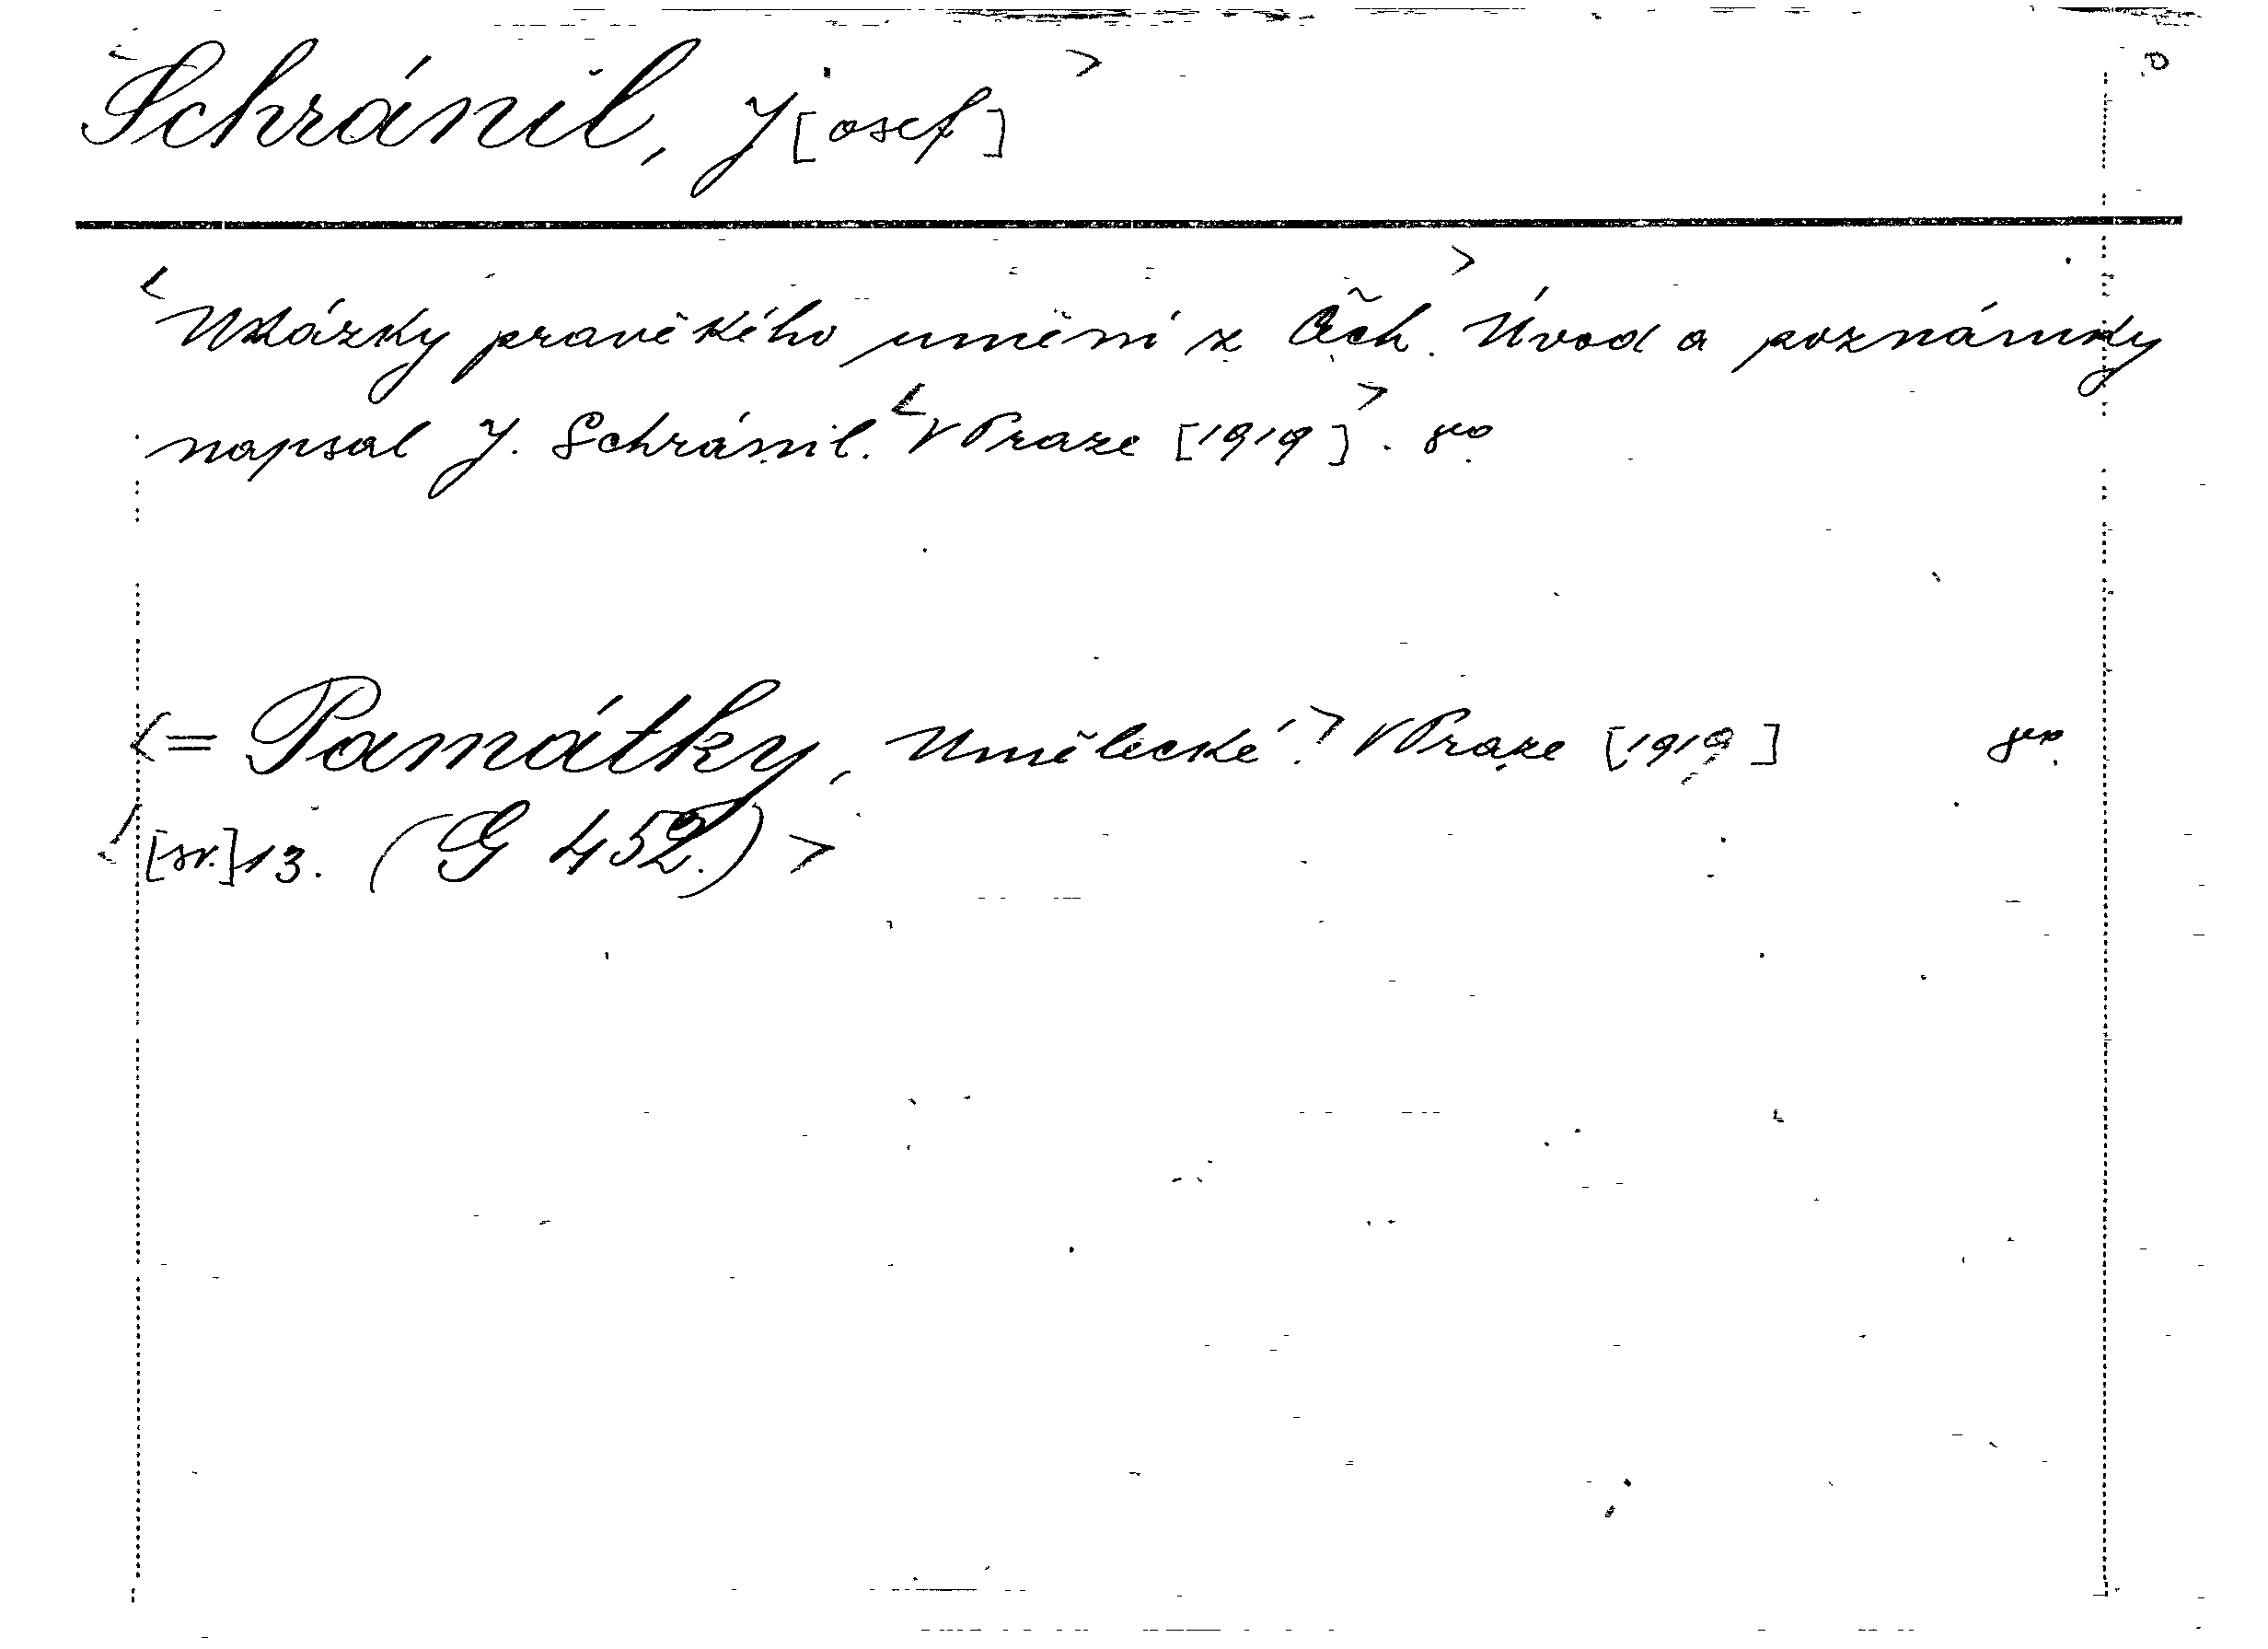 Schránil, J[osef]>
<Ukázky pravěkého umění z Čech.> Úvod a poznámky
napsal J. Schránil. <V Praze [1919]>. 8°.
<= Památky, Umělecké.> V Praze [1919] 8°.
<[sv.] 13. (G 452.)>